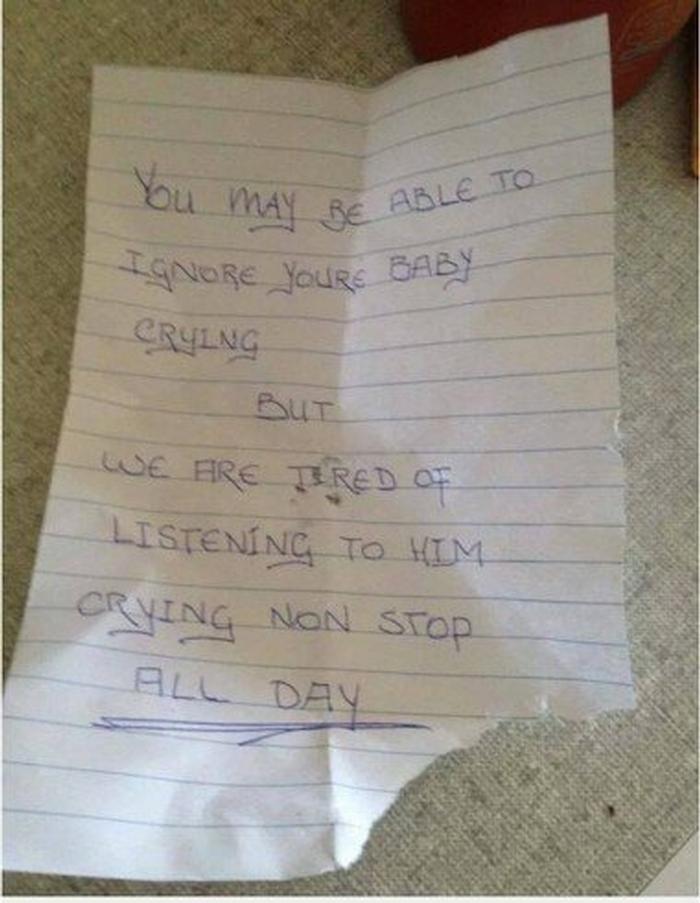 You MAY BE ABLE TO
IGNORE YOURE BABY
CRYING
BUT
WE ARE TIRED OF
LISTENING TO HIM
CRYING NON STOP
ALL DAY